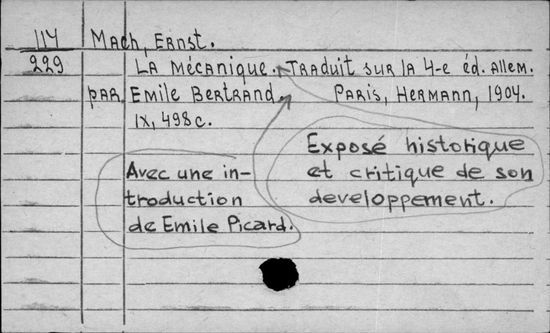 117 Mach, Ernst.
229 La Mécanique. Traduit sur la 4-e éd. allem.
par Emile Bertrand. Paris, Hermann, 1904.
IX, 498 c.
Exposé historique
et critique de son
developpement.
Avec une in-
troduction
de Emile Picard.